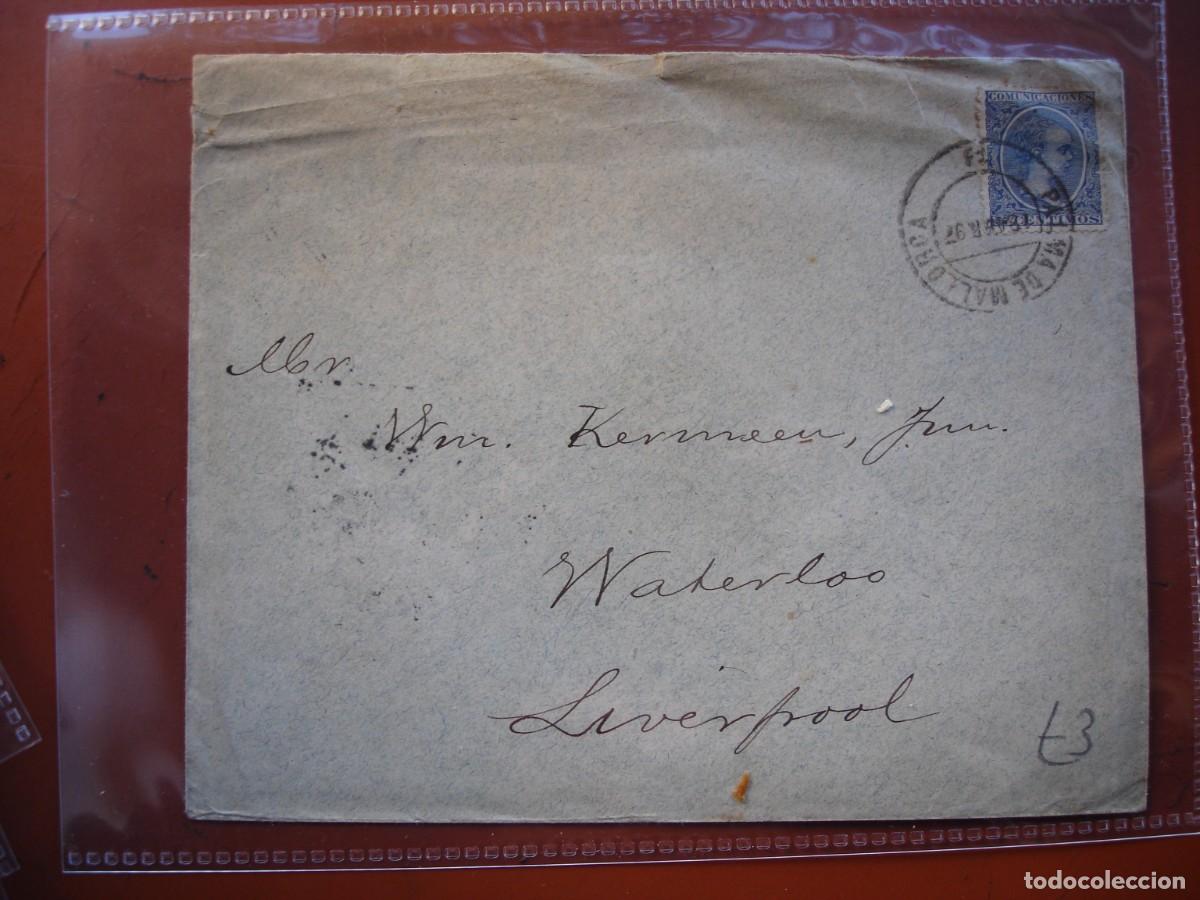 COMUNICACIONES
CENTIMOS
PALMA DE MALLORCA
ABR. 97
Mr.
Wm. Kermeen, Jun.
Waterloo
Liverpool
£3
todocoleccion